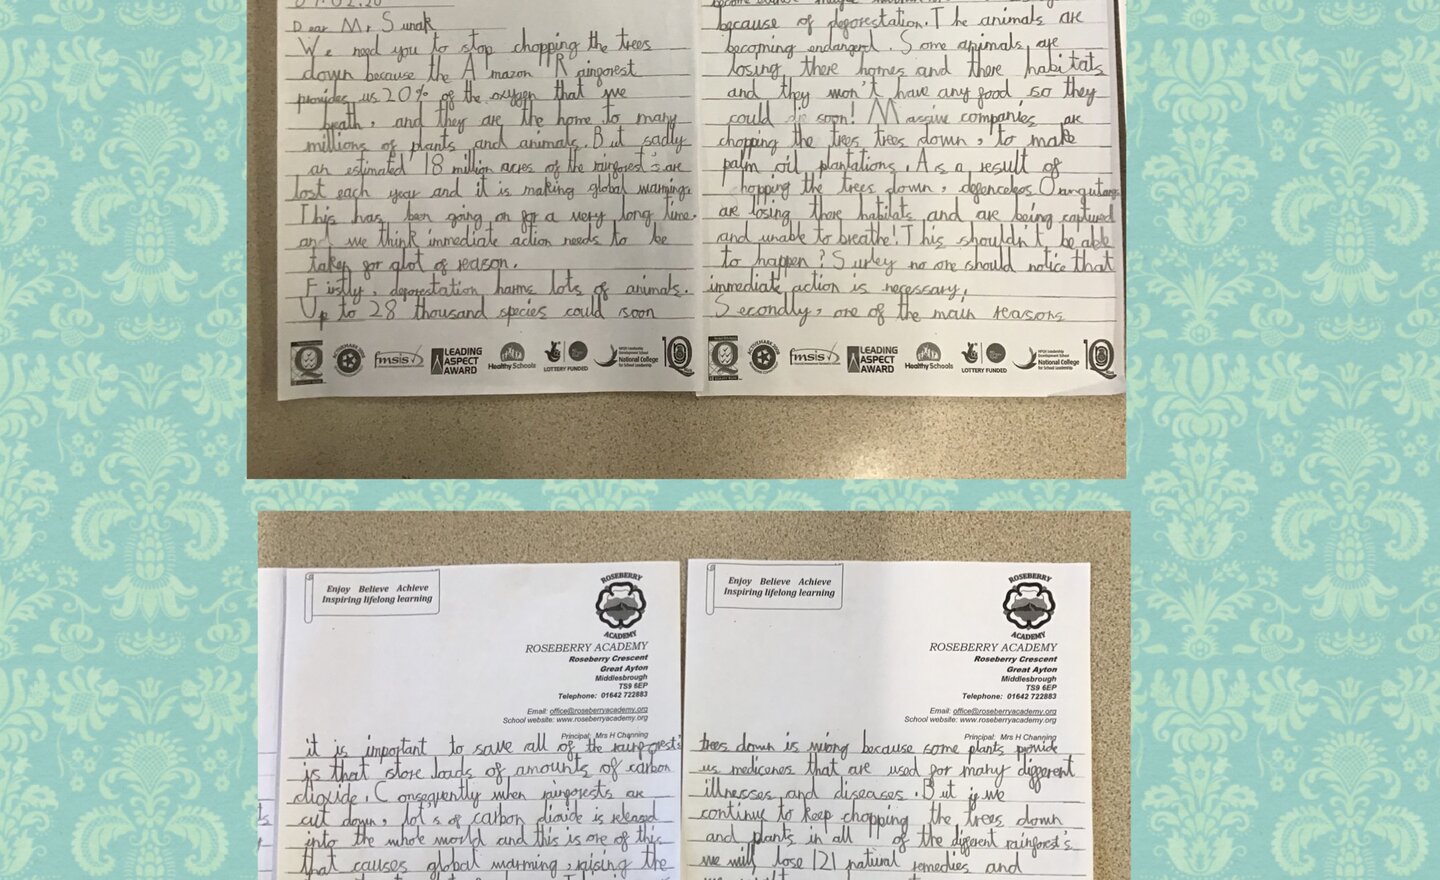 Dear Mr Sunak
We need you to stop chopping the trees
down because the Amazon Rainforest
provides us 20% of the oxygen that we
breath, and they are the home to many
millions of plants and animals. But sadly
an estimated 18 million acres of the rainforest's are
lost each year and it is making global warming.
This has been going on for a very long time.
and we think immediate action needs to be
taken for alot of reason.
Firstly, deforestation harms lots of animals.
Up to 28 thousand species could soon
LEADING ASPECT AWARD
fmsis
Healthy Schools
LOTTERY FUNDED
National College
for School Leadership
because of deforestation. The animals are
becoming endangerd. Some animals are
losing there homes and there habitats
and they won't have any food so they
could die soon! Massive companies are
chopping the trees trees down, to make
palm oil plantations. As a result of
hopping the trees down, defenceless Orangutans
are losing there habitats and are being captured
and unable to breathe! This shouldn't be able
to happen? Surley no one should notice that
immediate action is necessary.
Secondly, one of the main reasons
fmsis
LEADING ASPECT AWARD
Healthy Schools
LOTTERY FUNDED
National College
for School Leadership
Enjoy Believe Achieve
Inspiring lifelong learning
ROSEBERRY
ACADEMY
ROSEBERRY ACADEMY
Roseberry Crescent
Great Ayton
Middlesbrough
TS9 6EP
Telephone: 01642 722883
Email: office@roseberryacademy.org
School website: www.roseberryacademy.org
Principal: Mrs H Channing
it is important to save all of the rainforest's
is that store loads of amounts of carbon
dioxide. Consequently when rainforests are
cut down, lot's of carbon dioxide is released
into the whole world and this is one of this
that causes global warming, raising the
Enjoy Believe Achieve
Inspiring lifelong learning
ROSEBERRY
ACADEMY
ROSEBERRY ACADEMY
Roseberry Crescent
Great Ayton
Middlesbrough
TS9 6EP
Telephone: 01642 722883
Email: office@roseberryacademy.org
School website: www.roseberryacademy.org
Principal: Mrs H Channing
trees down is wrong because some plants provide
us medicenes that are used for many different
illnesses and diseases. But if we
continue to keep chopping the trees down
and plants in all of the different rainforest's
we will lose 121 natural remedies and